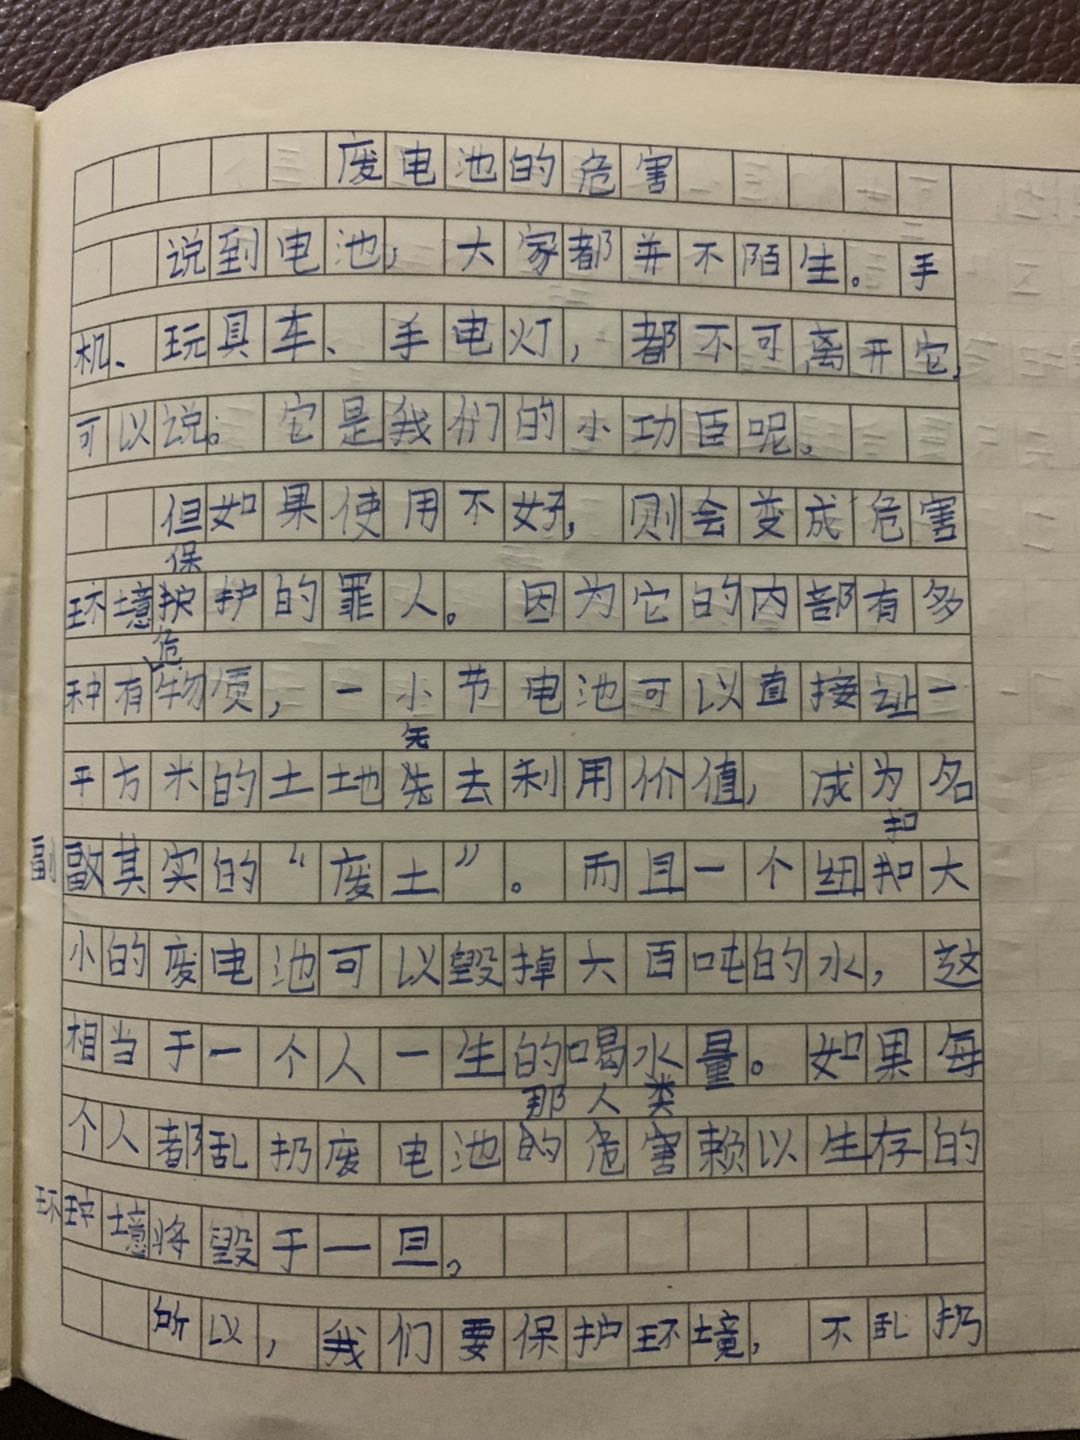 废电池的危害
说到电池，大家都并不陌生。手
机、玩具车、手电灯，都不可离开它，
可以说。它是我们的小功臣呢。
但如果使用不好，则会变成危害
保
环境护护的罪人。因为它的内部有多
危
种有物质，一小节电池可以直接让一
无
平方米的土地先去利用价值，成为名
扣
副
其实的“废土”。而且一个纽扣大
小的废电池可以毁掉六百吨的水，这
相当于一个人一生的喝水量。如果每
那人类
个人都乱扔废电池的危害赖以生存的
环
境将毁于一旦。
所以，我们要保护环境，不乱扔